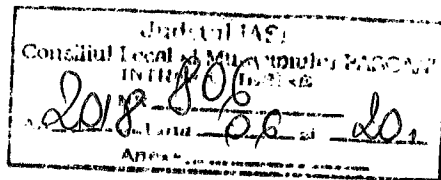 Judeţul IAŞI
Consiliul Local al Municipiului PAŞCANI
INTRARE
Nr. 806
2018 Luna 06 zi 20
Anexe